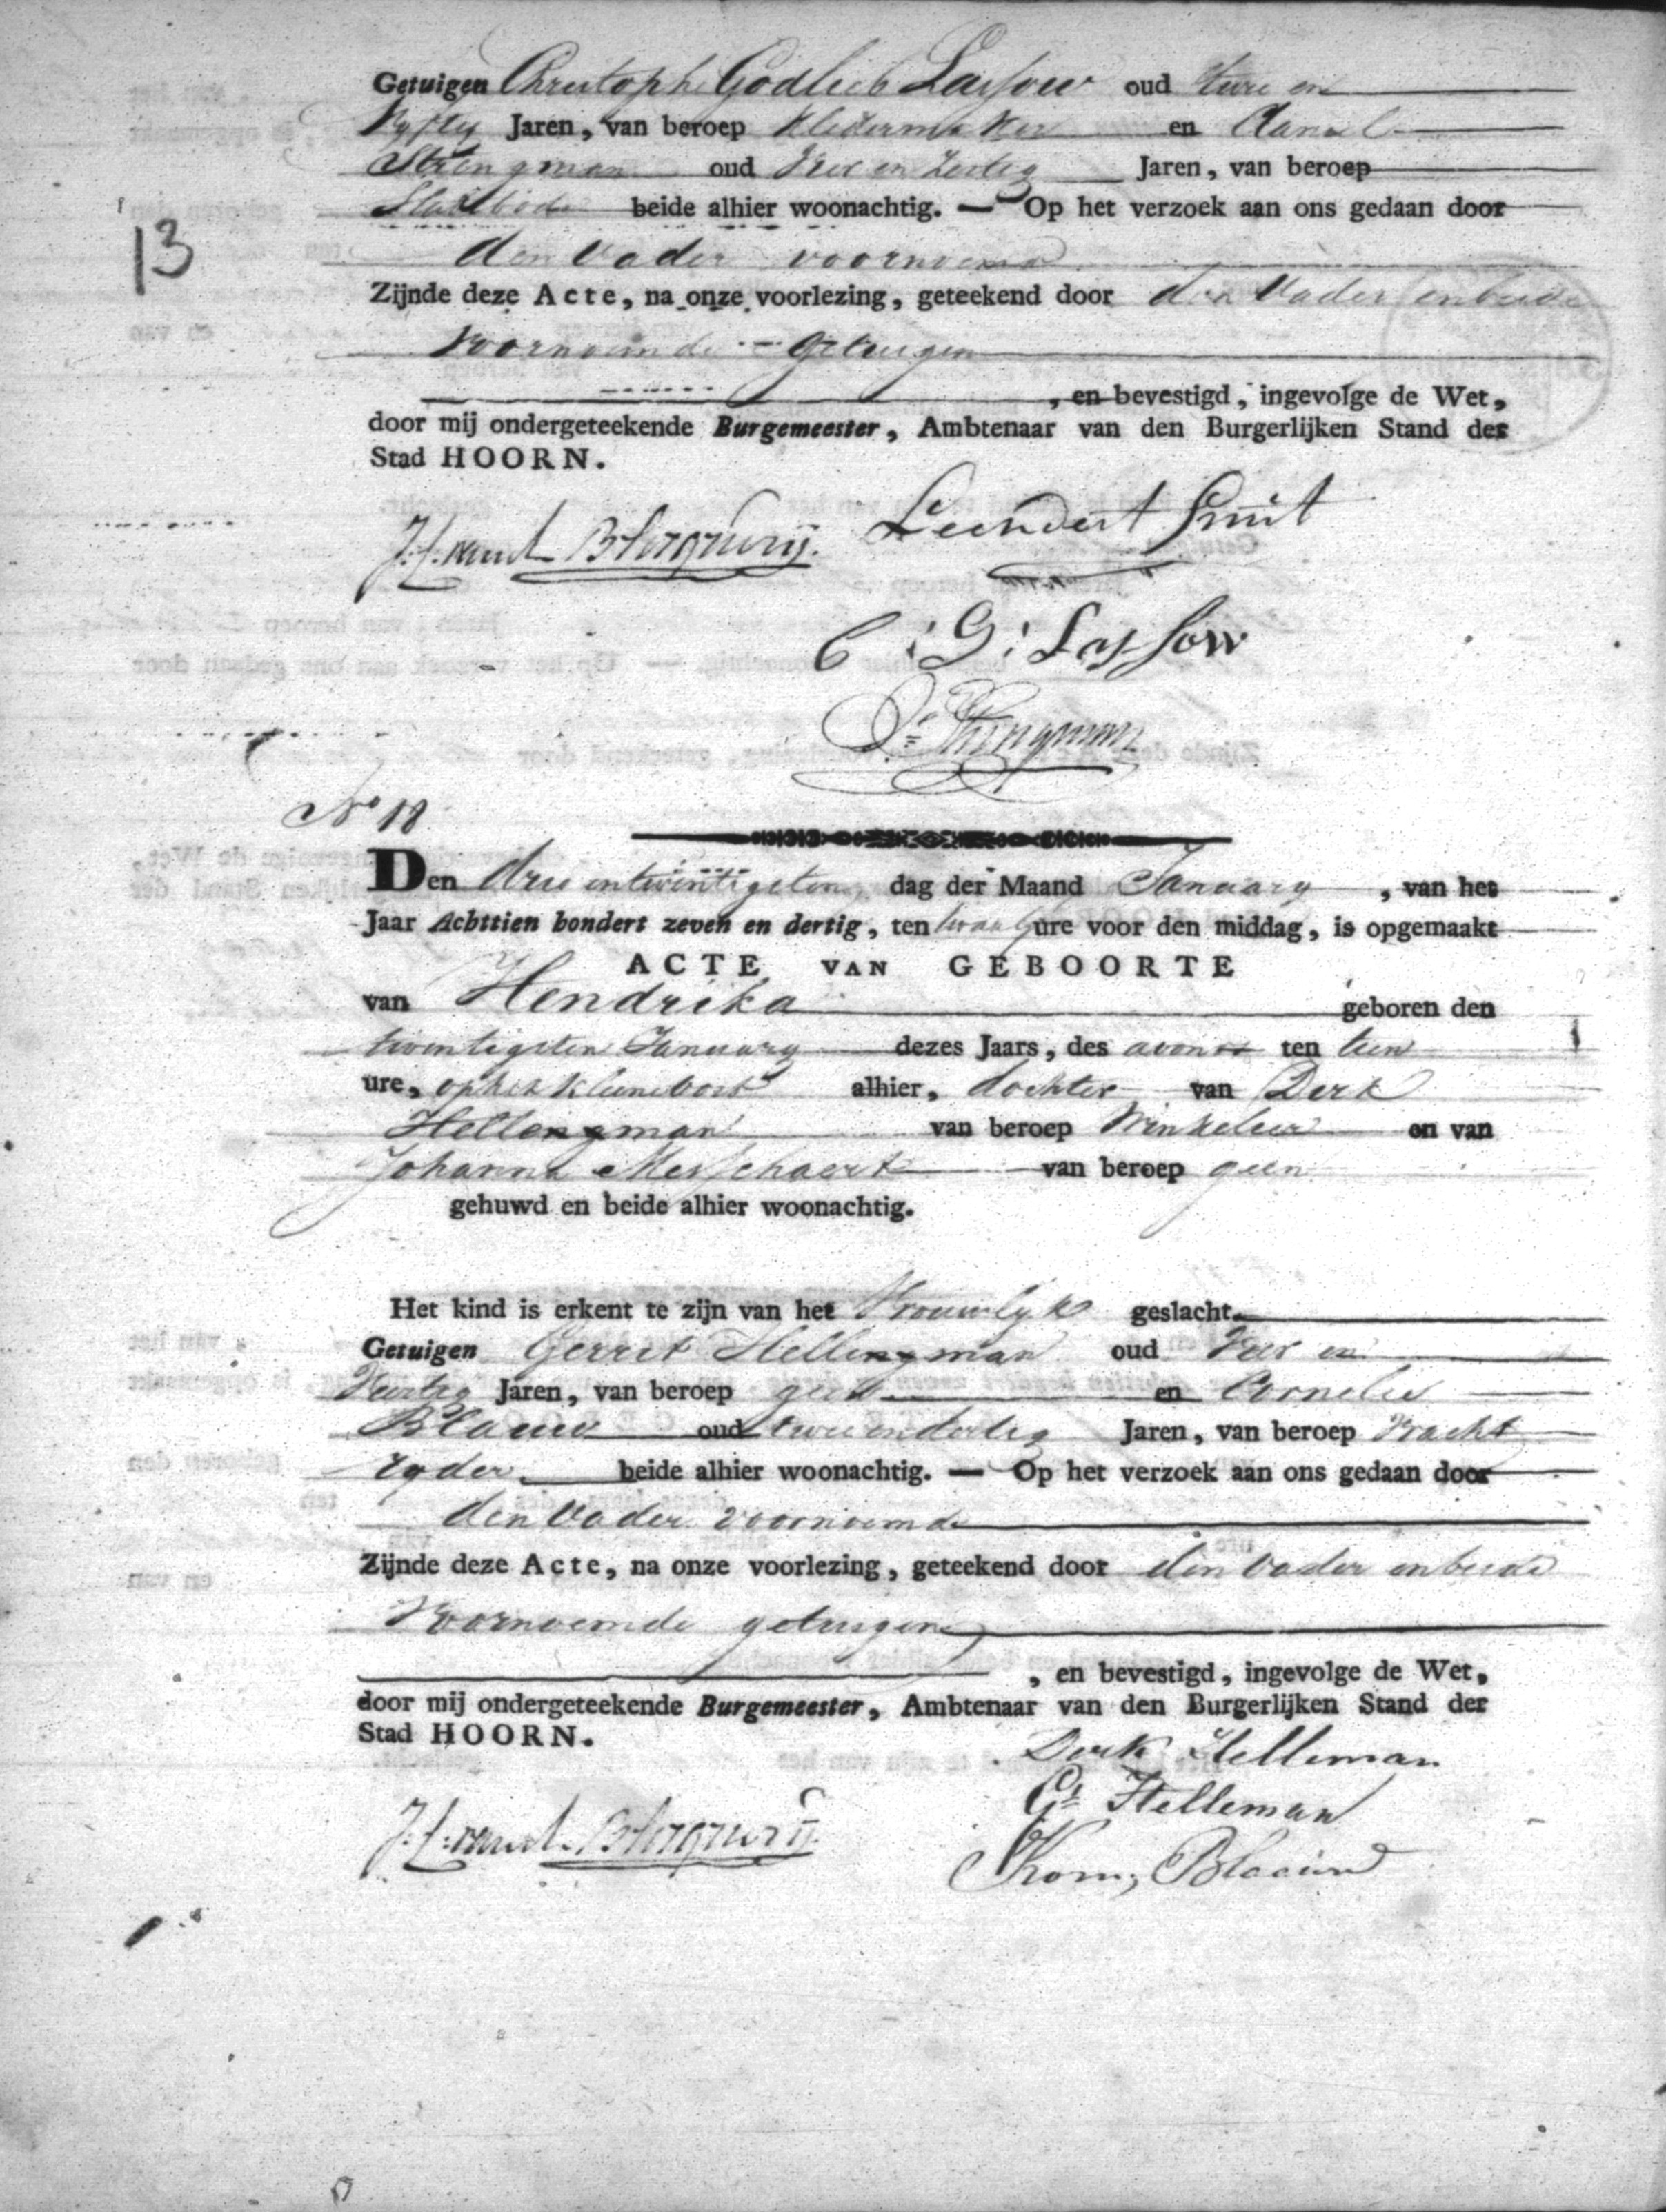 Getuigen Christoph Godlieb Lassow oud twee en
Vyftig Jaren, van beroep Kledermaker en Daniel
Stringman oud Vier en Zestig Jaren, van beroep
Stadsbode beide alhier woonachtig. — Op het verzoek aan ons gedaan door
13
den Vader voornoemd
Zijnde deze Acte, na onze voorlezing, geteekend door den Vader en beide
Voornoemde Getuigen
, en bevestigd, ingevolge de Wet,
door mij ondergeteekende Burgemeester, Ambtenaar van den Burgerlijken Stand der
Stad HOORN.
Leendert Smit
C: G: Lassow
No 18
Den drie en twintigsten dag der Maand January, van het
Jaar Achttien hondert zeven en dertig, ten twaalf ure voor den middag, is opgemaakt
ACTE VAN GEBOORTE
van Hendrika geboren den
twintigsten January dezes Jaars, des avonds ten tien
ure, op het Kleine Oost alhier, dochter van Derk
Hellengman van beroep Winkelier en van
Johanna Messchaert van beroep geen
gehuwd en beide alhier woonachtig.
Het kind is erkent te zijn van het Vrouwlyk geslacht.
Getuigen Gerret Hellengman oud Vier en
Veertig Jaren, van beroep geen en Cornelis
Blauw oud twee en dertig Jaren, van beroep Vracht
ryder beide alhier woonachtig. — Op het verzoek aan ons gedaan door
den Vader voornoemde
Zijnde deze Acte, na onze voorlezing, geteekend door den Vader en beide
Voornoemde getuigen
, en bevestigd, ingevolge de Wet,
door mij ondergeteekende Burgemeester, Ambtenaar van den Burgerlijken Stand der
Stad HOORN.
Derk Helleman
Gt Helleman
Korn; Blaauw